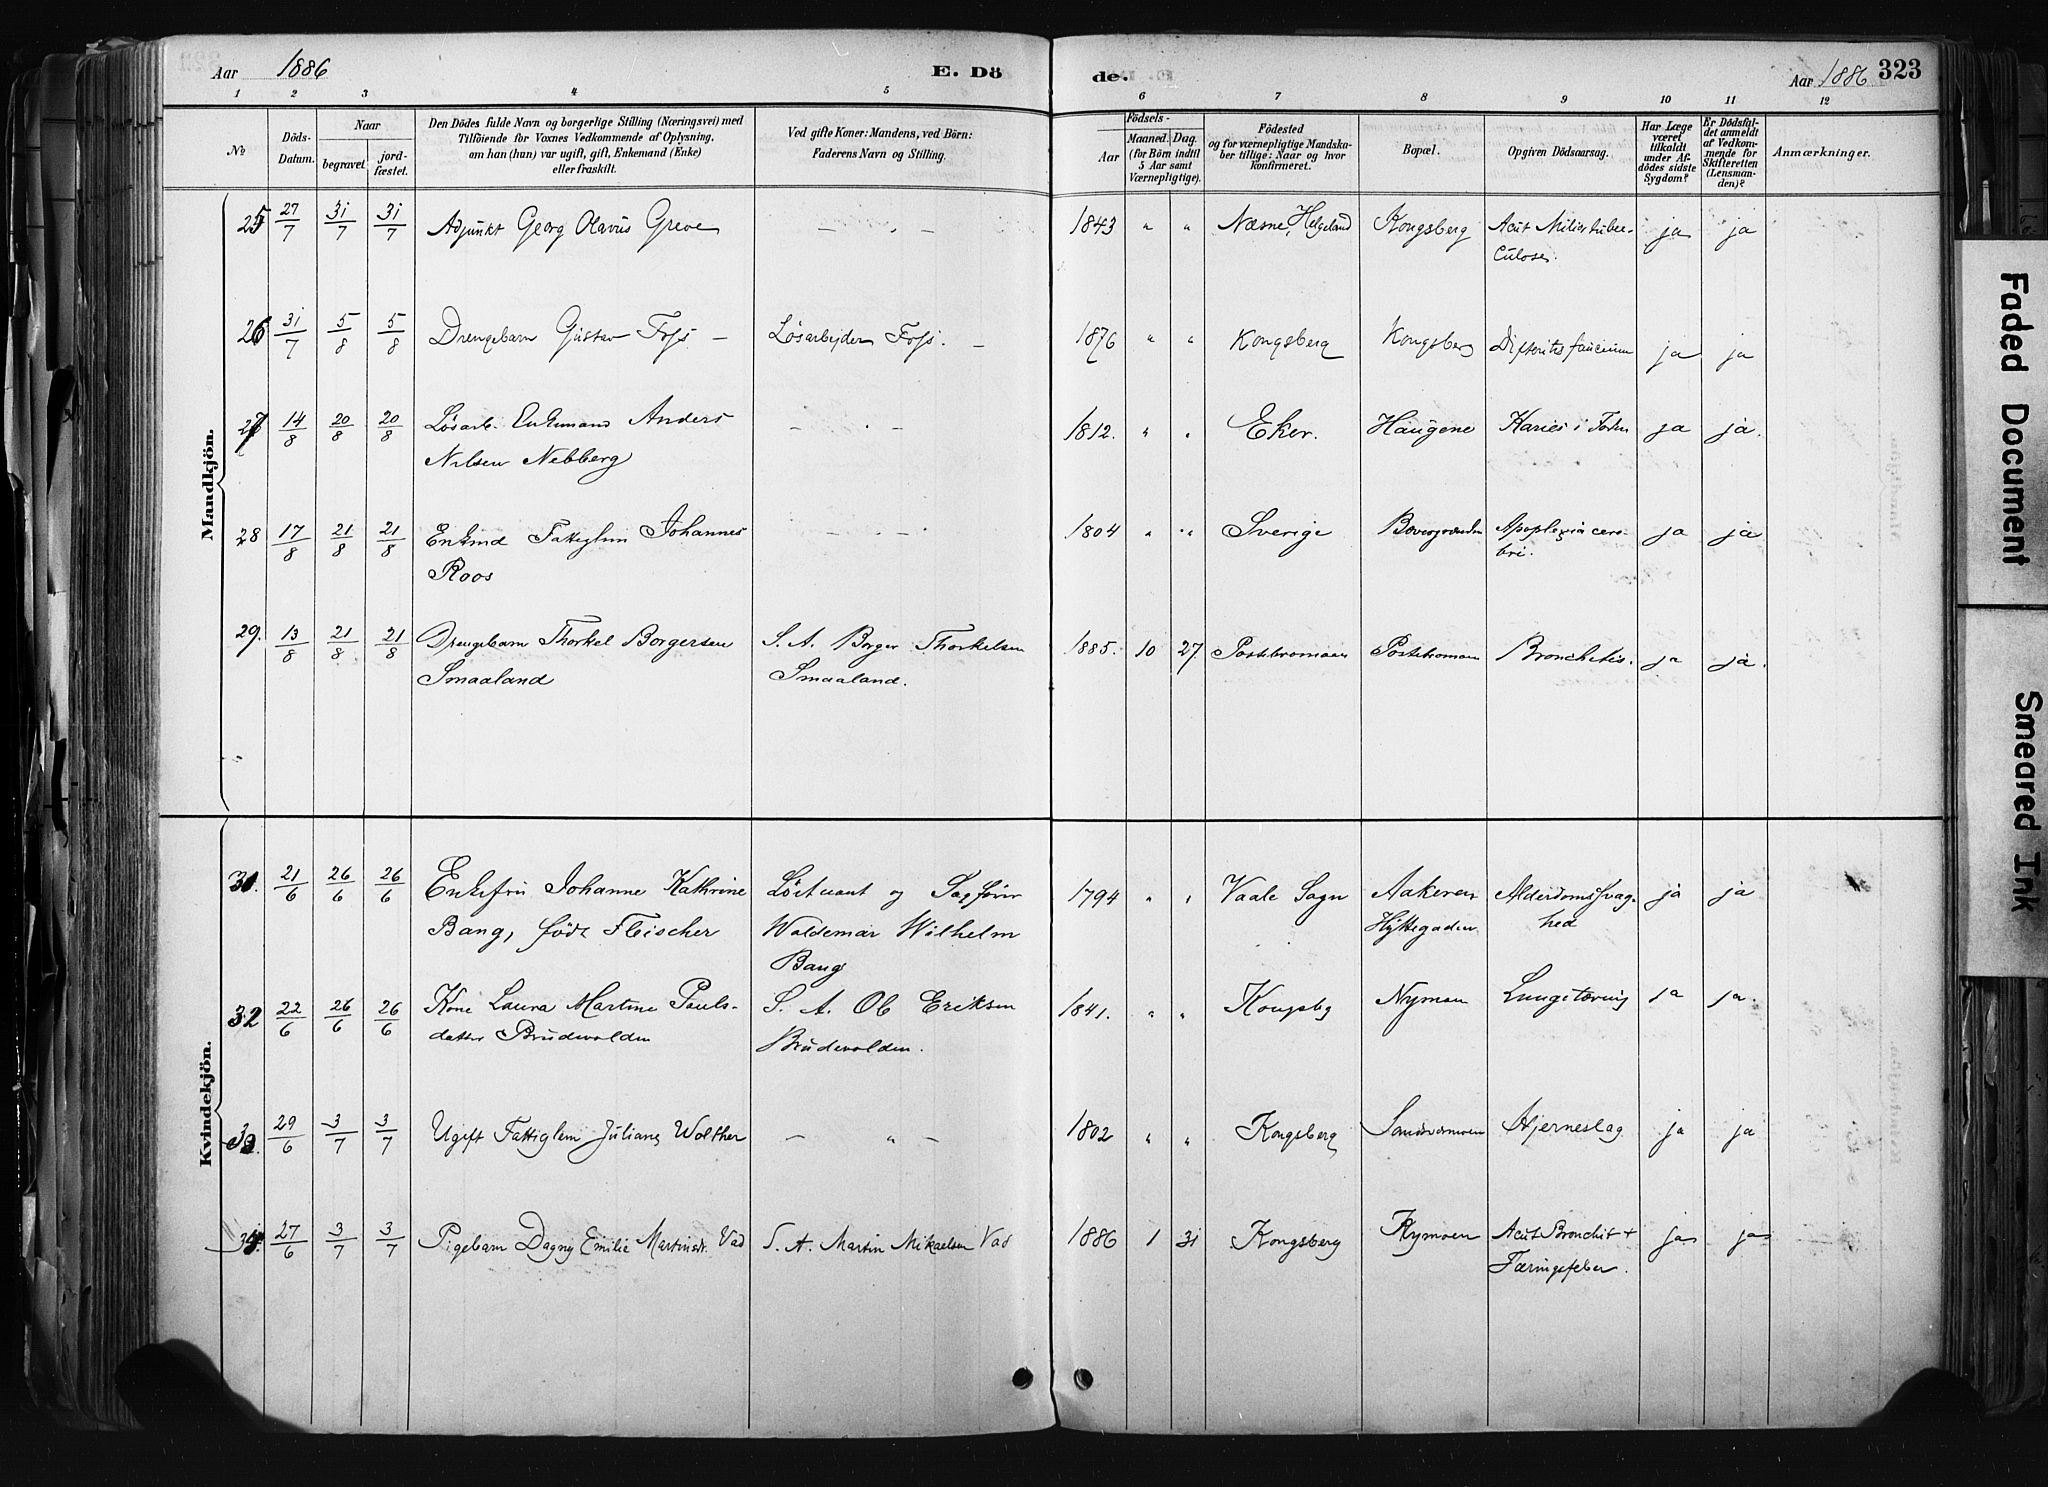 Aar 1886
E. Dö
de.
Aar 1886 323
1 2 3 4 5 6 7 8 9 10 11 12
No
Döds-Datum.
Naar
begravet
jord-fæstet.
Den Dödes fulde Navn og borgerlige Stilling (Næringsvei) med
Tilföiende for Voxnes Vedkommende af Oplysning,
om han (hun) var ugift, gift, Enkemand (Enke)
eller fraskilt.
Ved gifte Koner: Mandens, ved Börn:
Faderens Navn og Stilling.
Födsels-
Aar
Maaned. Dag.
(for Börn indtil
5 Aar samt
Værnepligtige).
Födested
og for værnepligtige Mandska-
ber tillige: Naar og hvor
konfirmeret.
Bopæl.
Opgiven Dödsaarsag.
Har Læge
været
tilkaldt
under Af-
dödes sidste
Sygdom?
Er Dödsfal-
det anmeldt
af Vedkom-
mende for
Skifteretten
(Lensman-
den)?
Anmærkninger.
Mandkjön.
25 27/7 31/7 31/7 Adjunkt Georg Olavus Greve — „ — 1843 „ „ Næsne, Helgeland Kongsberg Acut Miliartuber-
culose. ja ja
26 31/7 5/8 5/8 Drengebarn Gustav Foss — Løsarbejder Foss. — 1876 „ „ Kongsberg Kongsberg Difteritis faucium ja ja
27 14/8 20/8 20/8 Løsarb. Enkemand Anders — „ — 1812. „ „ Eker. Haugene Karies i Foden ja ja.
Nilsen Nebberg
28 17/8 21/8 21/8 Enkmd Fattiglem Johannes — „ — 1804 „ „ Sverige Apoplexia cere-
bri. ja ja
Roos
29. 13/8 21/8 21/8 Drengebarn Thorkel Borgersen S. A. Borger Thorkelsen 1885. 10 27 Bronchitis. ja ja.
Smaaland Smaaland.
Kvindekjön.
31. 21/6 26/6 26/6 Enkefru Johanne Kathrine Løitnant og Sagfører 1794 „ „ Vaale Sogn Aakeren Alderdomssvag- ja ja
Bang, født Fleischer Waldemar Wilhelm Hyttegaden hed
Bang
32 22/6 26/6 26/6 Kone Laura Martine Pauls- S. A. Ole Eriksen 1841. „ „ Kongsbg Nymoen Lungetæring ja ja.
datter Brudevolden Brudevolden.
33. 29/6 3/7 3/7 Ugift Fattiglem Juliane Wolther — „ — 1802 „ „ Kongsberg Sandsværmoen Hjerneslag ja ja
34. 27/6 3/7 3/7 Pigebarn Dagny Emilie Martinsdr. Vad S. A. Martin Mikaelsen Vad 1886 1 31 Kongsberg Nymoen Acut Bronchit +
Tæringsfeber. ja ja
Faded Document
Smeared Ink